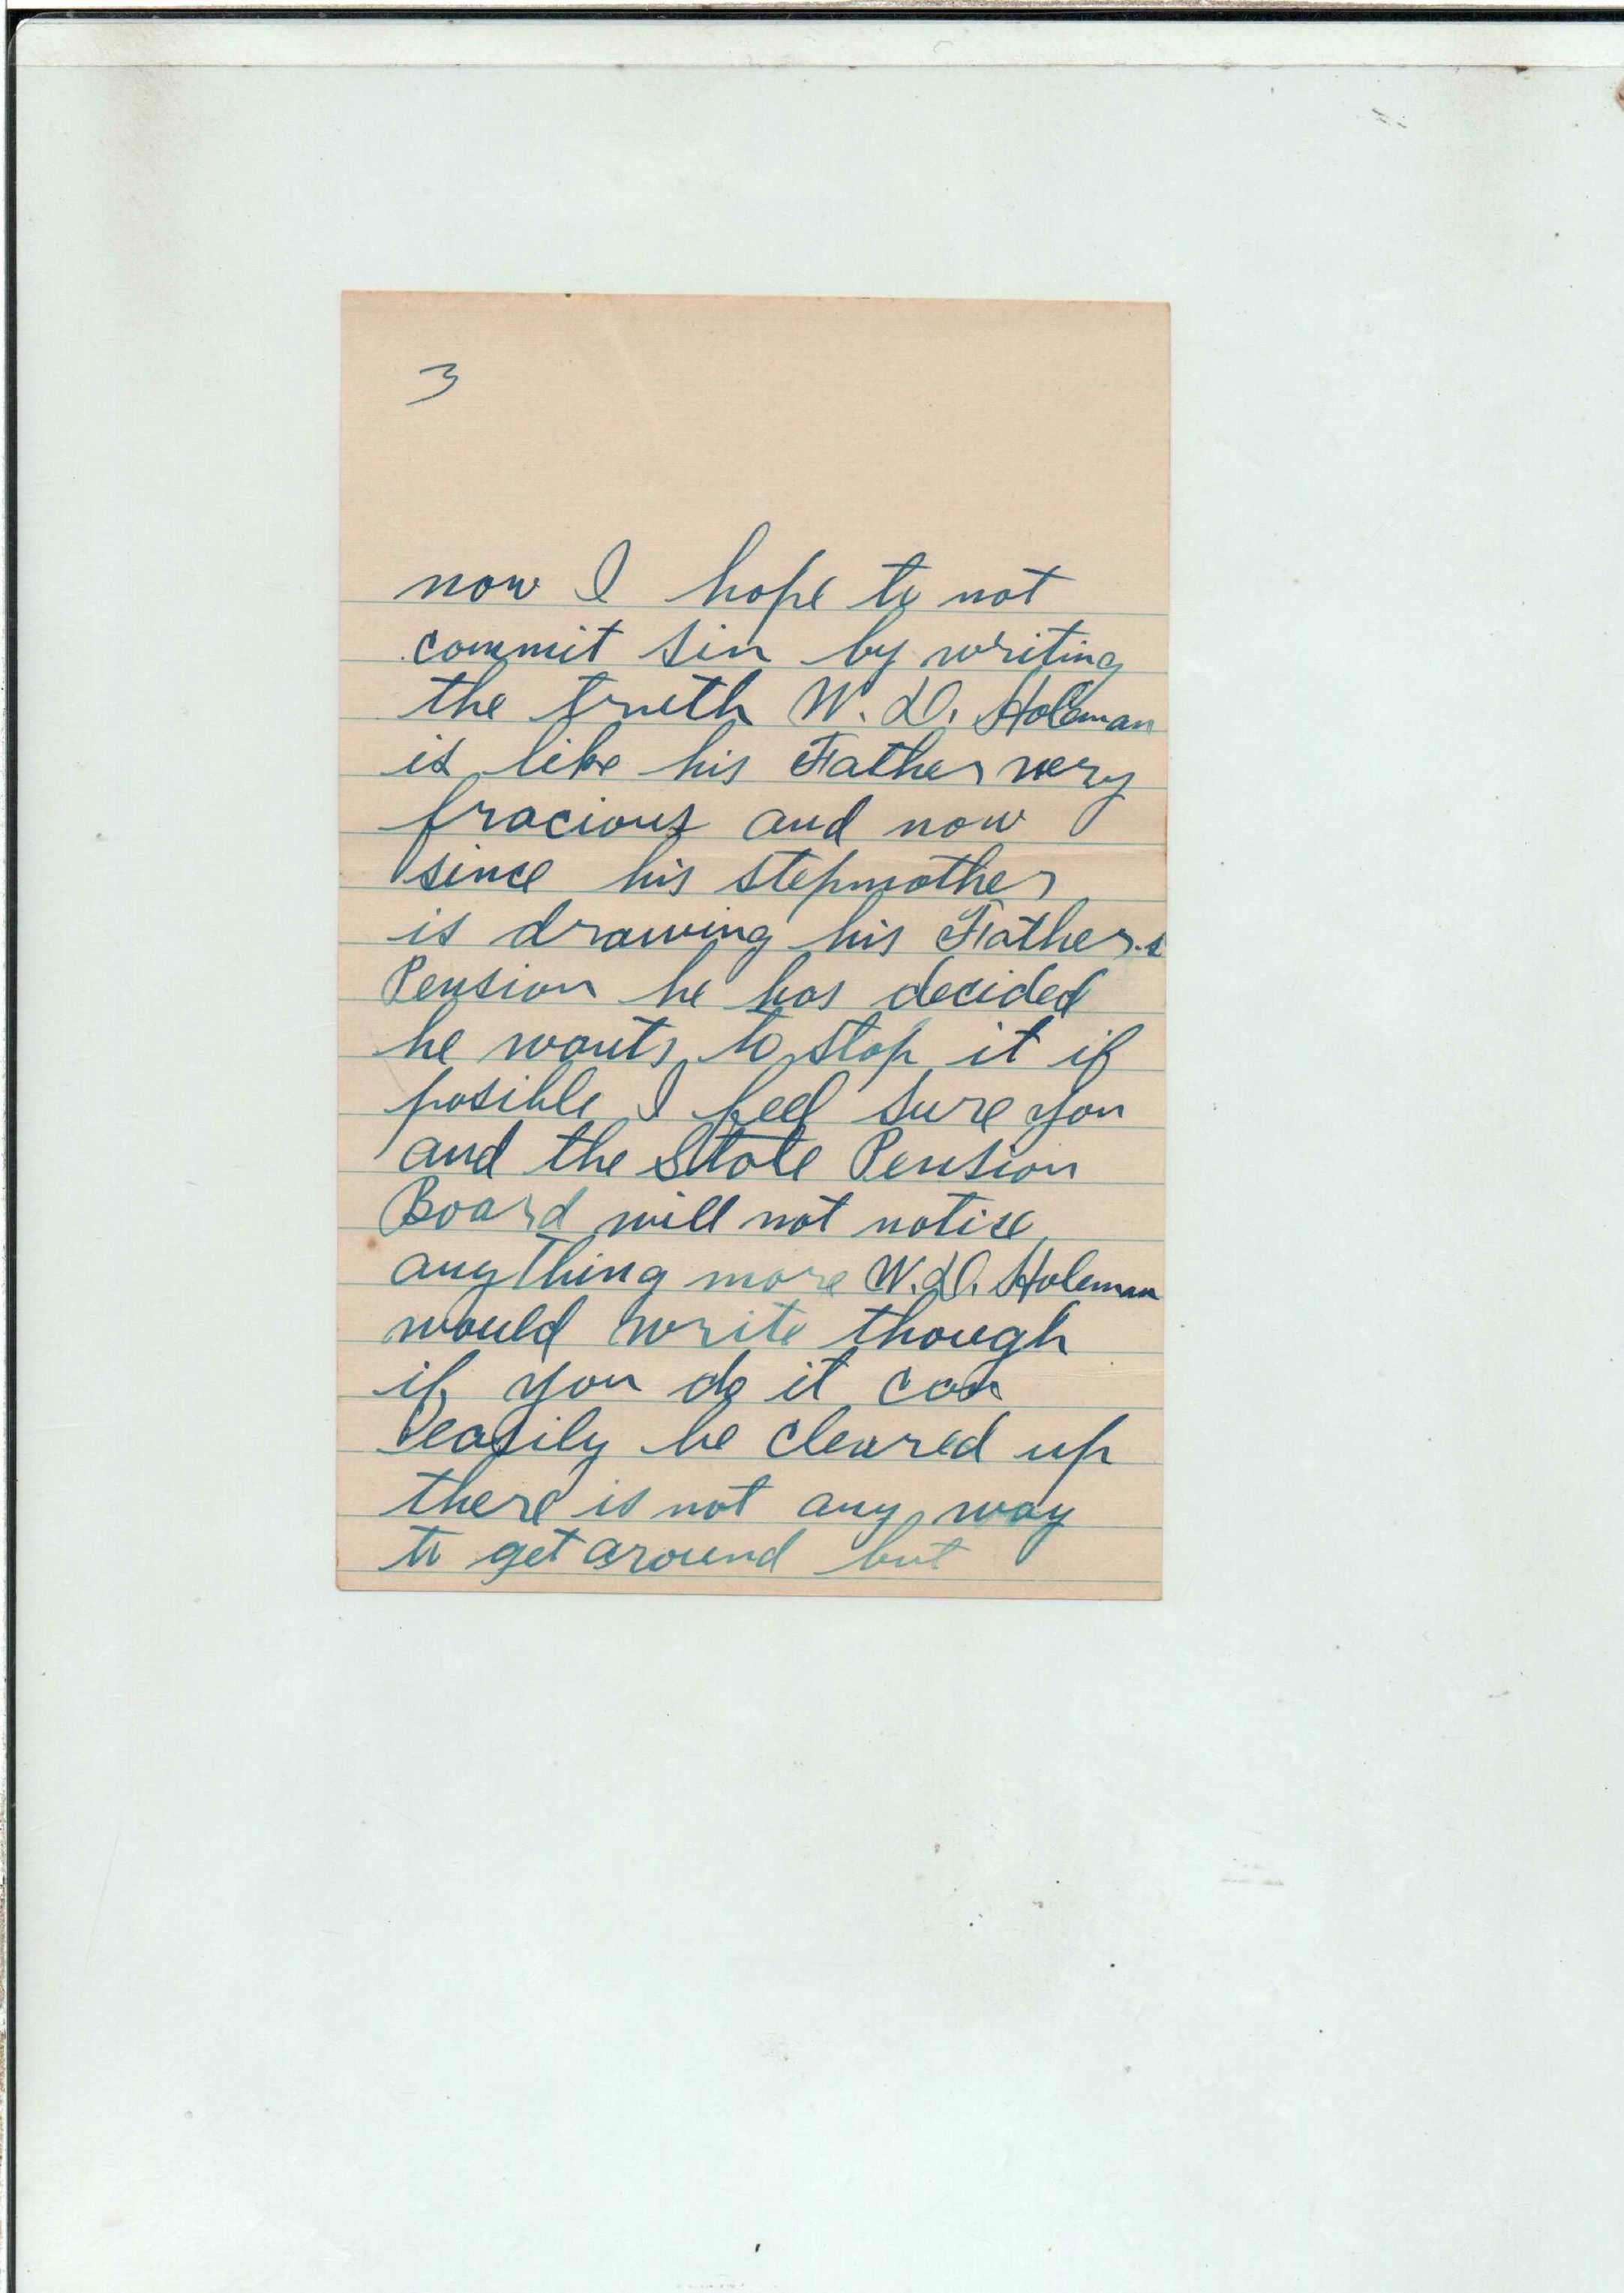 3
now I hope to not
commit sin by writing
the truth W. D. Holeman
is like his Father very
fracious and now
since his stepmother
is drawing his Father.s
Pension he has decided
he wants to stop it if
posible I feel sure you
and the State Pension
Board will not notise
anything more W. D. Holeman
would write though
if you do it can
easily be cleared up
there is not any way
to get around but